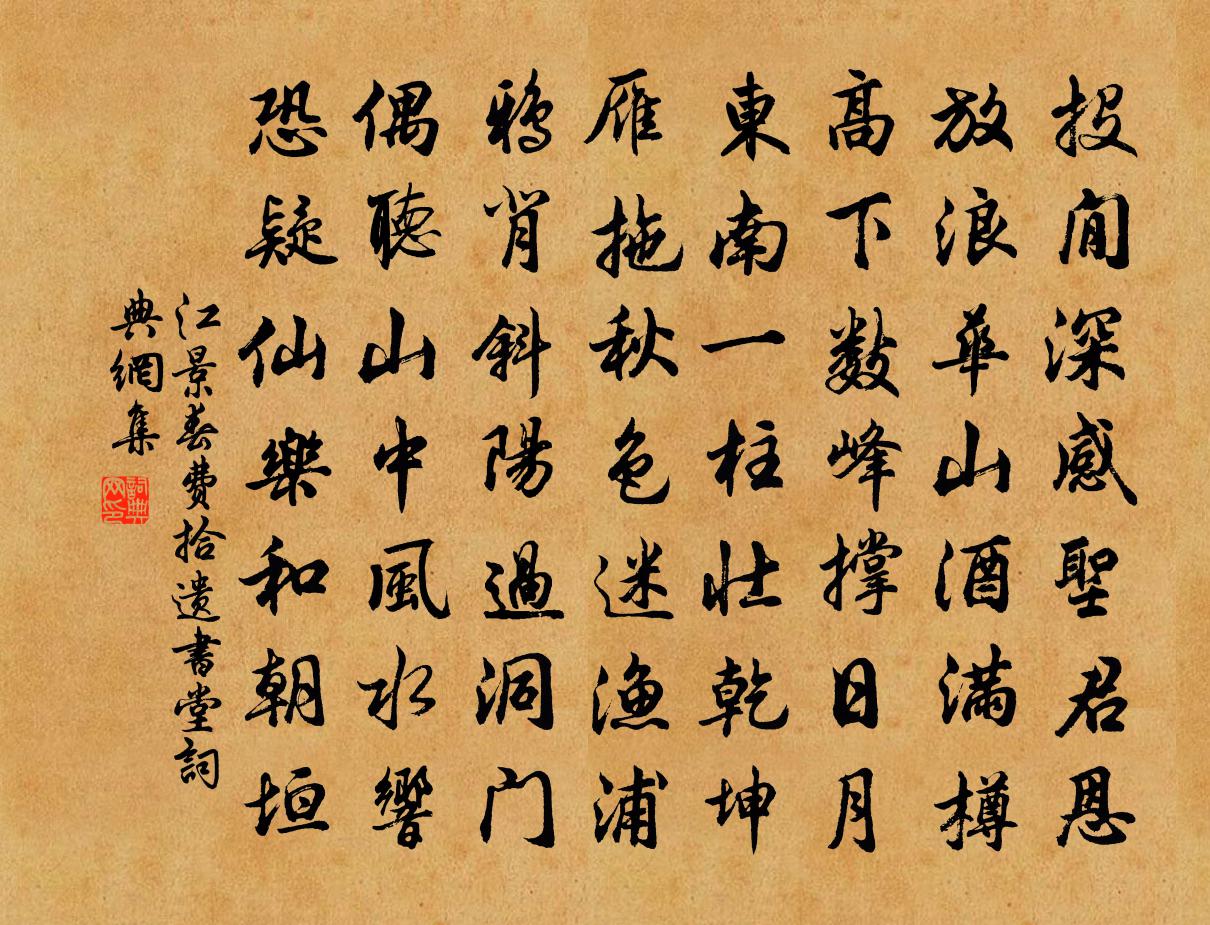 投閒深感聖君恩
放浪華山酒滿樽
高下數峰撐日月
東南一柱壯乾坤
雁拖秋色迷漁浦
鴉背斜陽過洞門
偶聽山中風水響
恐疑仙樂和朝垣
江景春費拾遺書堂詞
典網集
詞典網印